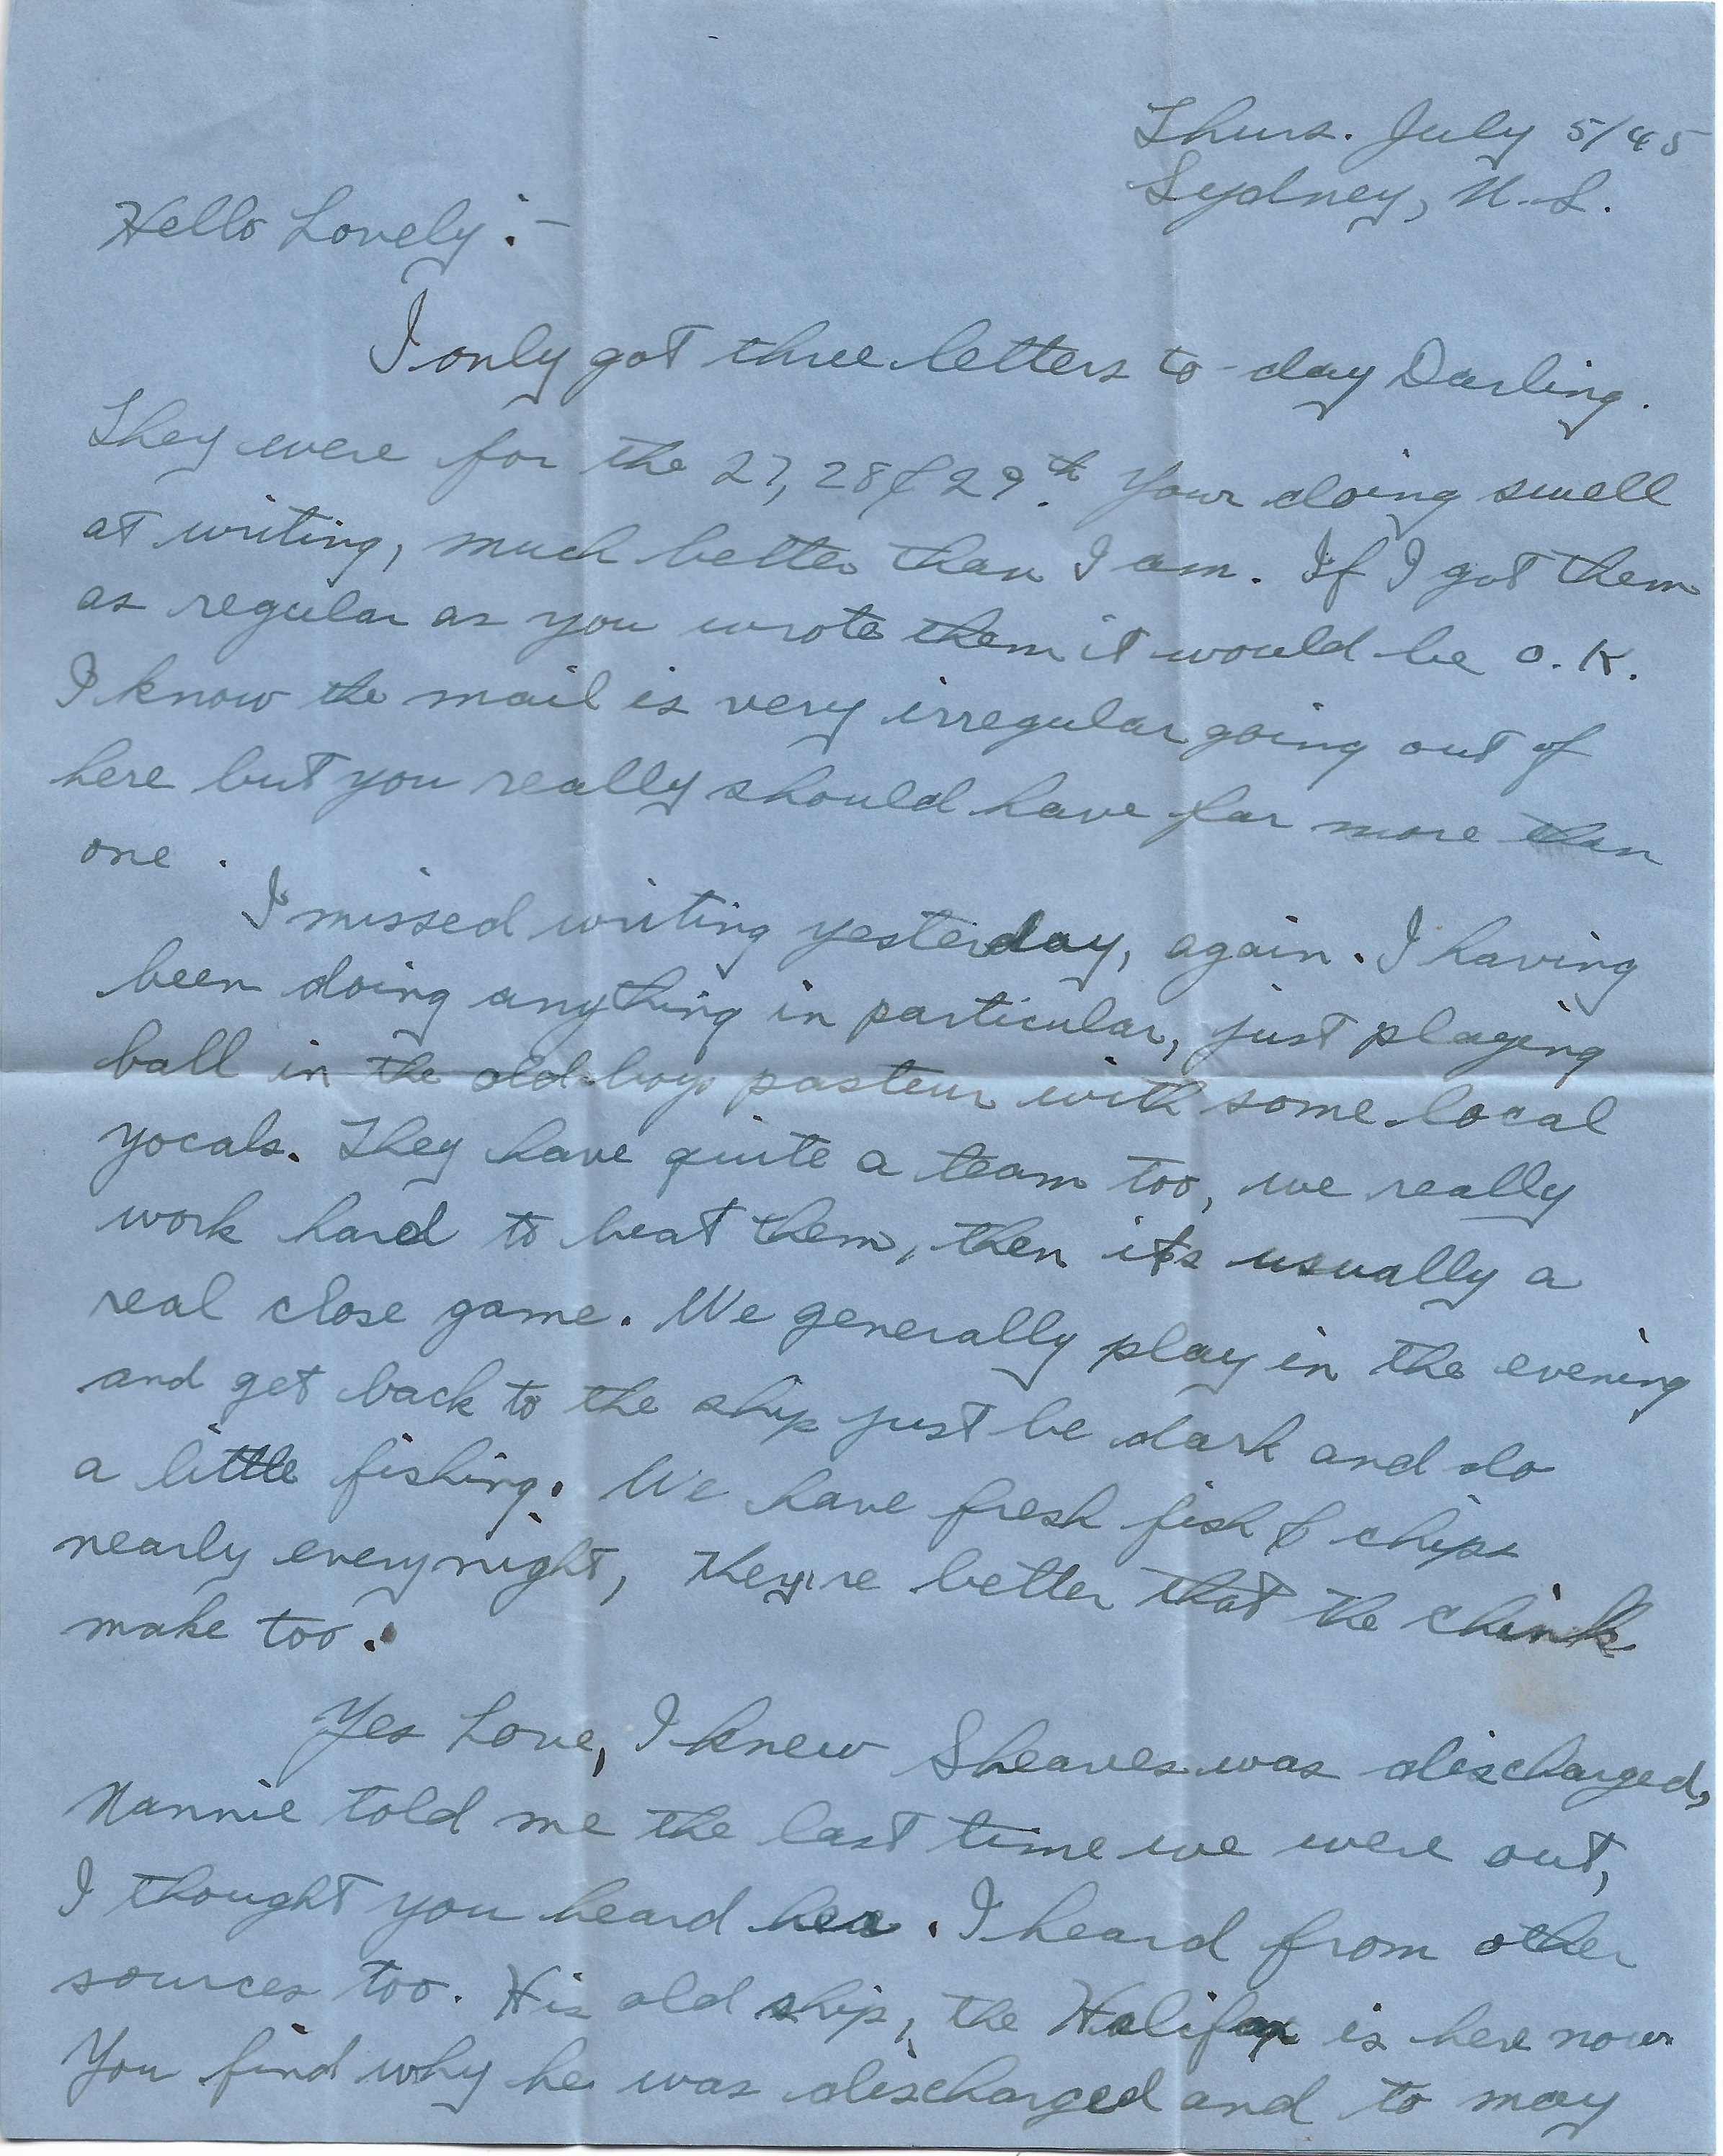 Thurs. July 5/45
Sydney, N.S.
Hello Lovely :-
I only got three letters to-day Darling.
They were for the 27, 28 & 29th. Your doing swell
at writing, much better than I am. If I got them
as regular as you wrote them it would be O.K.
I know the mail is very irregular going out of
here but you really should have far more than
one.
I missed writing yesterday, again. I having
been doing anything in particular, just playing
ball in the old boys pasteur with some local
yocals. They have quite a team too, we really
work hard to beat them, then its usually a
real close game. We generally play in the evening
and get back to the ship just be dark and do
a little fishing. We have fresh fish & chips
nearly every night, they're better that the chink
make too.
Yes Love, I knew Sheaves was discharged,
Nannie told me the last time we were out,
I thought you heard her. I heard from other
sources too. His old ship, the Halifax is here now.
You find why he was discharged and to may